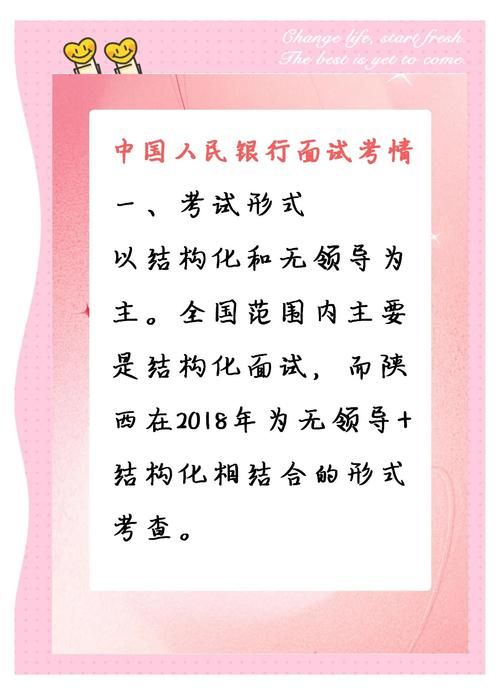 Change life, start fresh.
The best is yet to come.
中国人民银行面试考情
一、考试形式
以结构化和无领导为
主。全国范围内主要
是结构化面试，而陕
西在2018年为无领导+
结构化相结合的形式
考查。